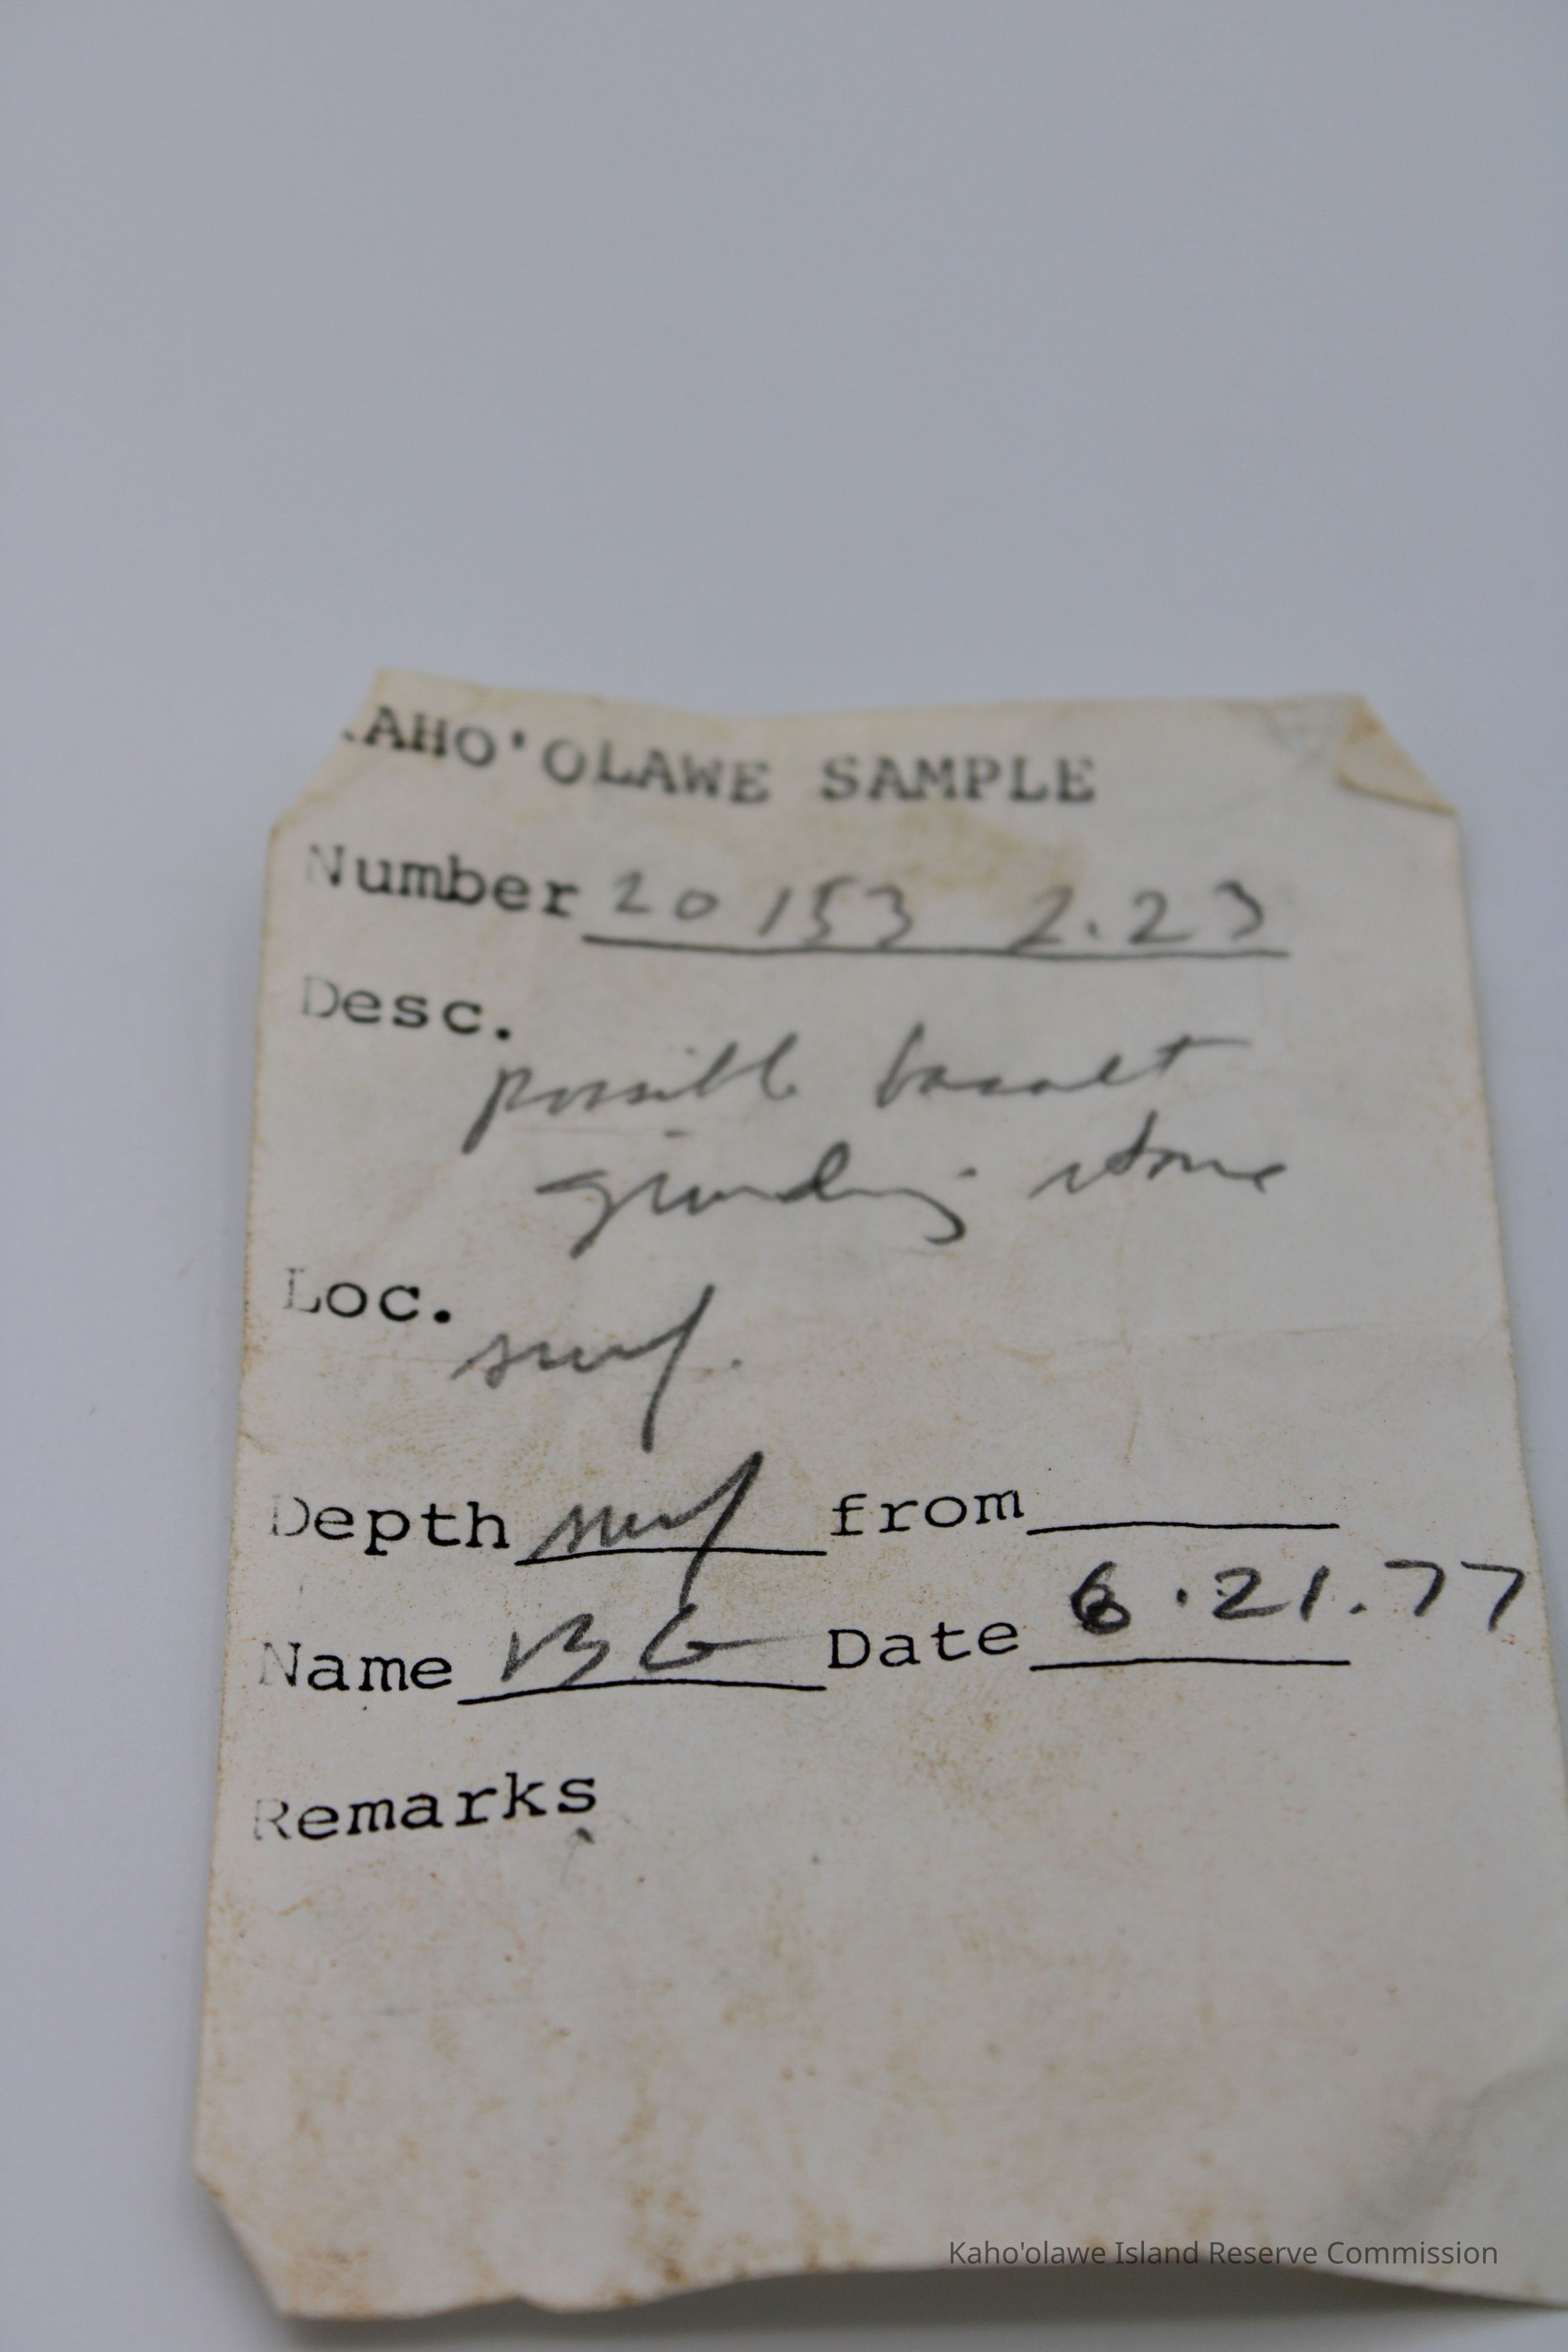 KAHO'OLAWE SAMPLE
Number 20 153 2.23
Desc.
possible basalt
grinding stone
Loc.
surf.
Depth surf from
Name BG Date 6.21.77
Remarks
Kaho'olawe Island Reserve Commission